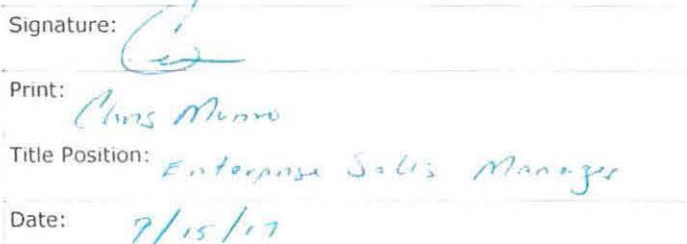 Signature:
Print: Chris Munro
Title Position: Enterprise Sales Manager
Date: 7/15/17